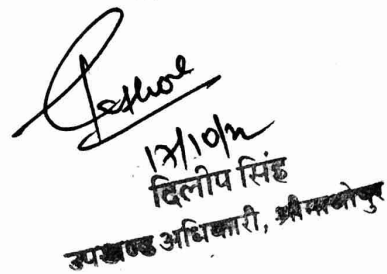 17/10/22
दिलीप सिंह
उपखण्ड अधिकारी, श्रीमाधोपुर